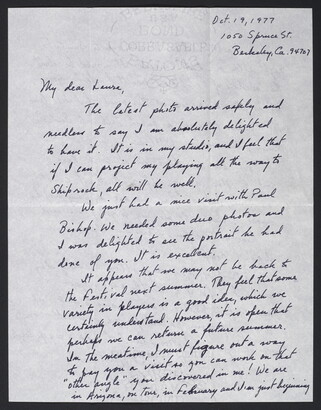 Oct. 19, 1977
1050 Spruce St.
Berkeley, Ca. 94707
My dear Laura,
The latest photo arrived safely and
needless to say I am absolutely delighted
to have it. It is in my studio, and I feel that
if I can project my playing all the way to
Shiprock, all will be well.
We just had a nice visit with Paul
Bishop. We needed some duo photos and
I was delighted to see the portrait he had
done of you. It is excellent.
It appears that we may not be back to
the Festival next summer. They feel that some
variety in players is a good idea, which we
certainly understand. However, it is open that
perhaps we can return a future summer.
In the meantime, I must figure out a way
to pay you a visit so you can work on that
"other angle" you discovered in me! We are
in Arizona, on tour, in February and I am just beginning